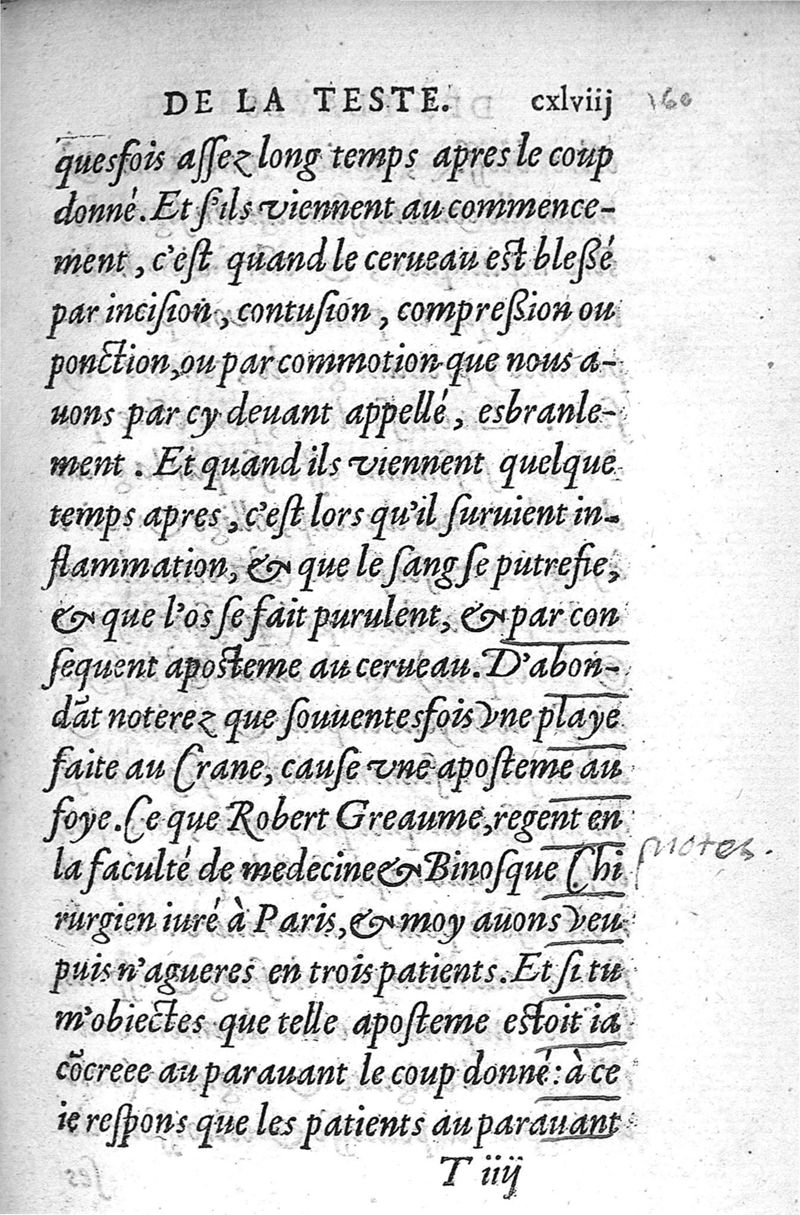 DE LA TESTE. cxlviij 160
quesfois aſſez long temps apres le coup
donné. Et ſ'ils viennent au commence-
ment, c'eſt quand le cerueau eſt bleßé
par inciſion, contuſion, compreßion ou
ponction, ou par commotion que nous a-
uons par cy deuant appellé, esbranle-
ment. Et quand ils viennent quelque
temps apres, c'eſt lors qu'il ſuruient in-
flammation, & que le ſang ſe putrefie,
& que l'os ſe fait purulent, & par con
ſequent apoſteme au cerueau. D'abon-
dāt noterez que ſouuentesfois vne playe
faite au Crane, cauſe vne apoſteme au
foye. Ce que Robert Greaume, regent en
la faculté de medecine & Binoſque Chi
notez.
rurgien iuré à Paris, & moy auons veu
puis n'agueres en trois patients. Et ſi tu
m'obiectes que telle apoſteme eſtoit ia
cōcreee au parauant le coup donné: à ce
ie reſpons que les patients au parauant
T iiij